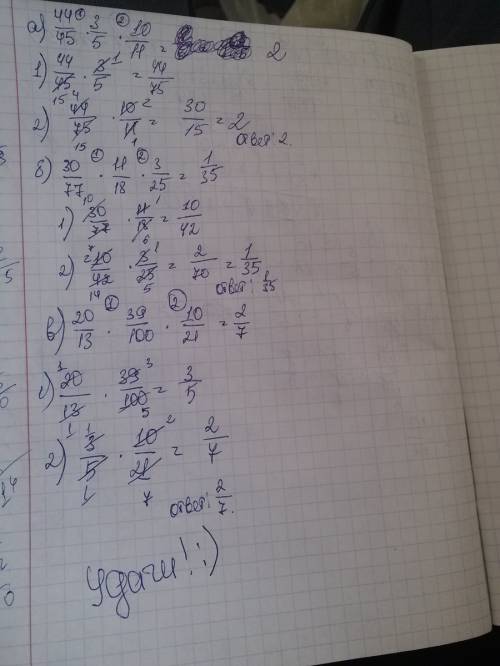 а) 44/45 ① · 3/5 ② · 10/11 = 2
1) 44/45 15 · 3/5 1 = 44/75
2) 44/75 4 15 · 10/11 2 1 = 30/15 = 2
ответ: 2.
б) 30/77 ① · 11/18 ② · 3/25 = 1/35
1) 30/77 10 7 · 11/18 1 6 = 10/42
2) 10/42 2 14 · 3/25 1 5 = 2/70 = 1/35
ответ: 1/35
в) 20/13 ① · 39/100 ② · 10/21 = 2/7
1) 20/13 1 1 · 39/100 3 5 = 3/5
2) 3/5 1 1 · 10/21 2 7 = 2/7
ответ: 2/7.
удачи!:)